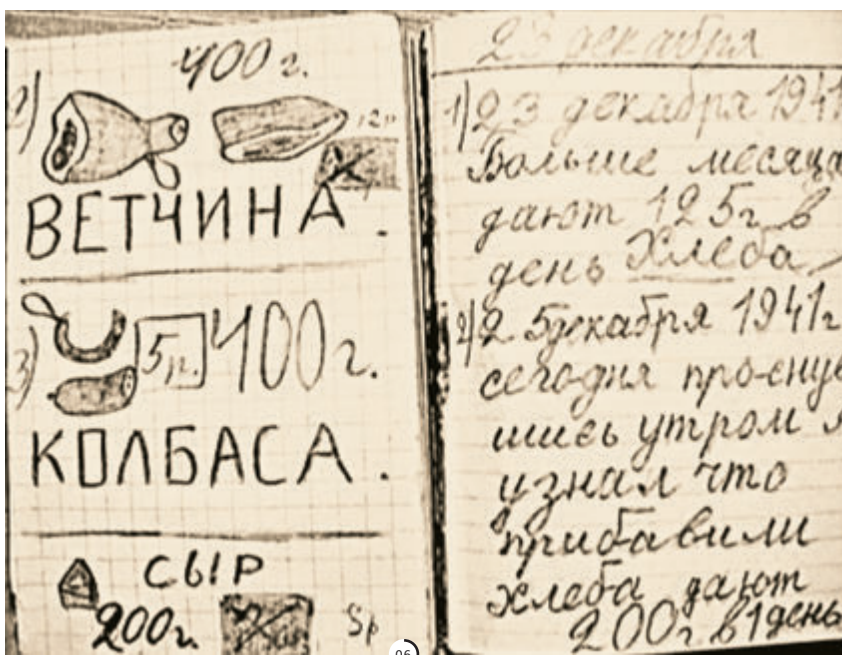 400 г.
2)
ВЕТЧИНА.
3)
5 р.
400 г.
КОЛБАСА.
СЫР
200 г.
5р
23 декабря
1) 23 декабря 1941
Больше месяца
дают 125 г. в
день Хлеба
2) 25 декабря 1941 г
сегодня про-сну
шись утром я
узнал что
прибавили
хлеба дают
200 г. в 1 день
96